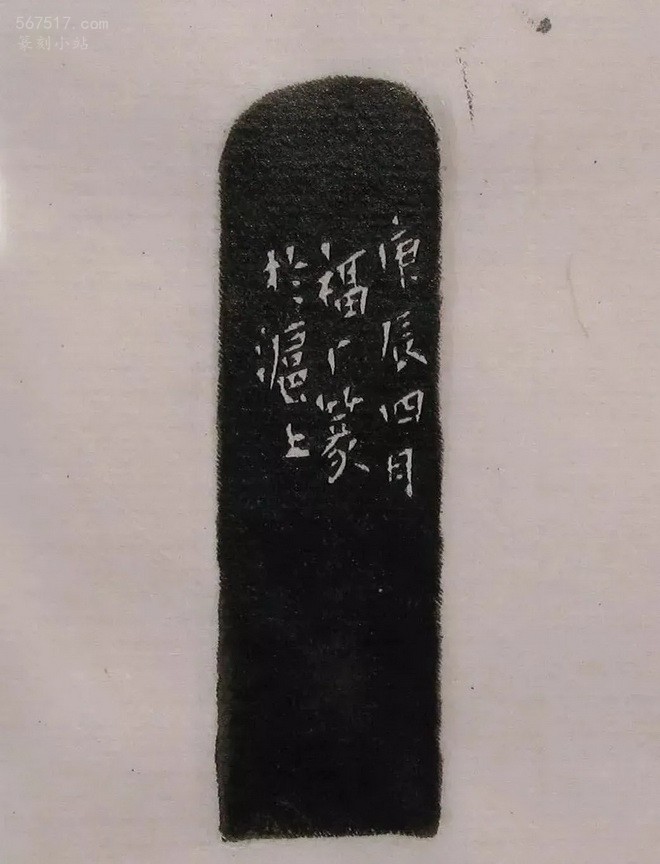 567517.com
篆刻小站
庚辰四月
福厂篆
於滬上